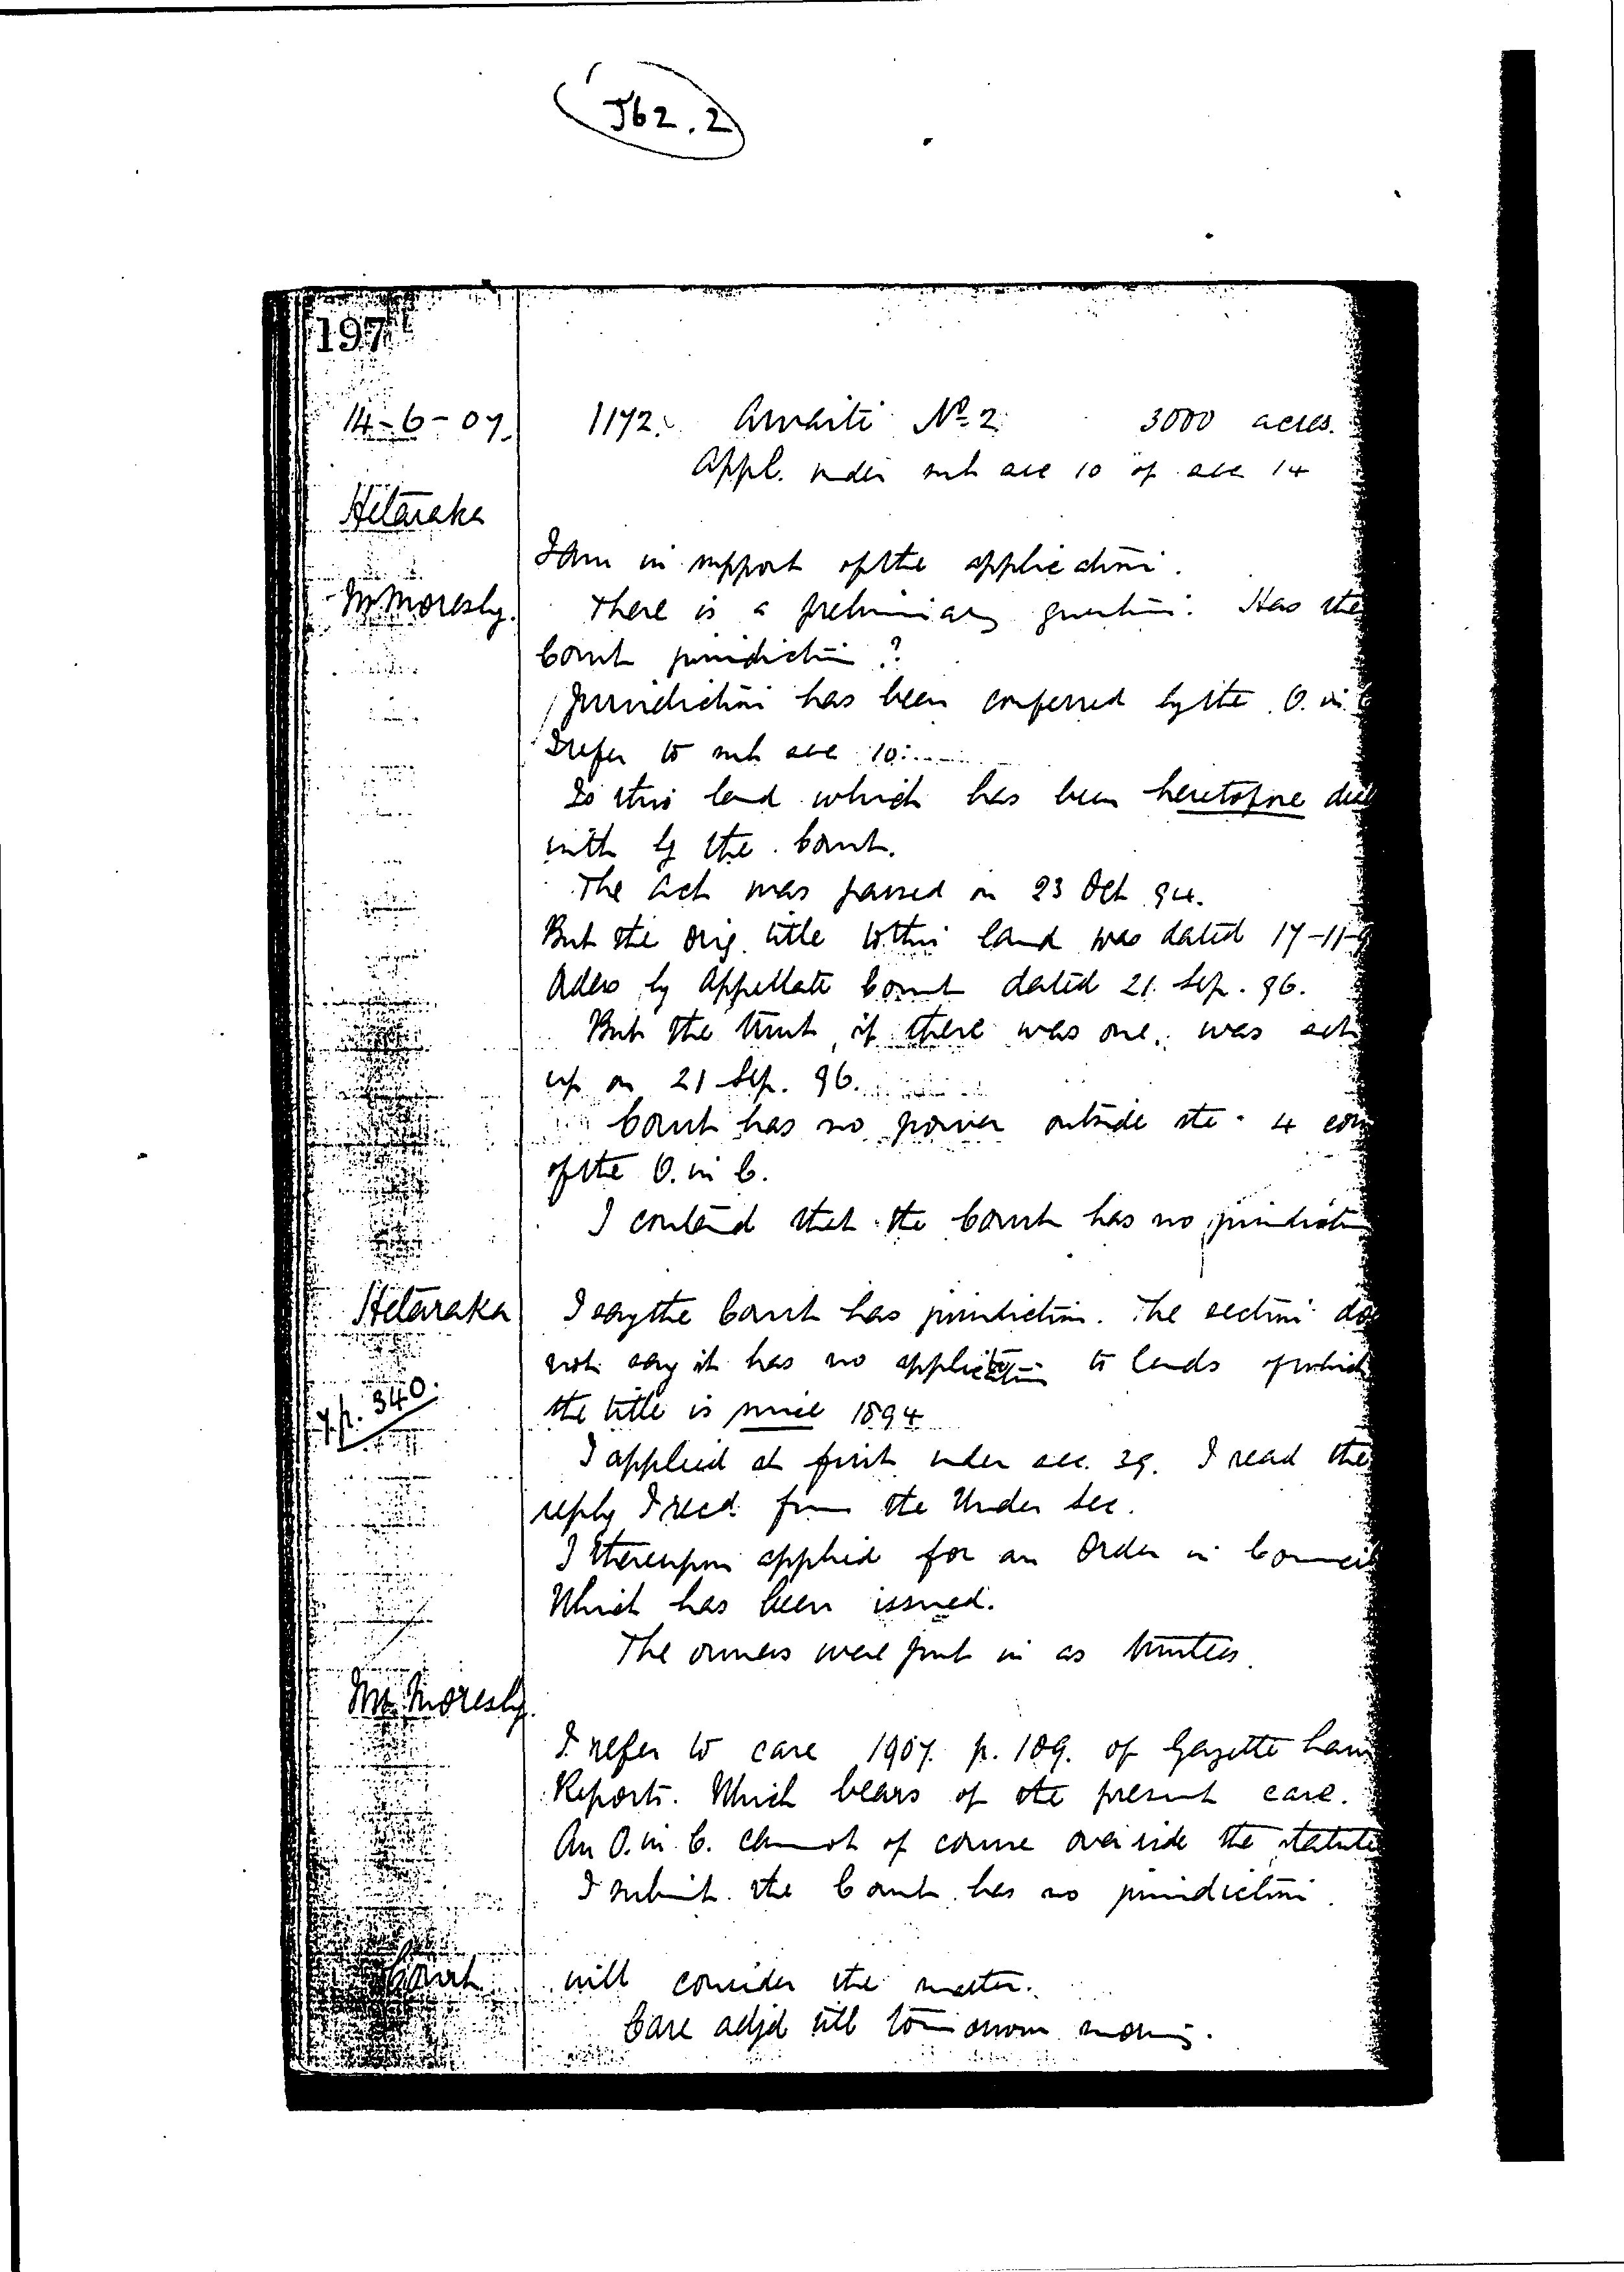 J62.2
197
14-6-07. 1172. Awaiti No 2. 3000 acres.
Appl. under sub sec 10 of sec 14
Hetaraka
I am in support of the application.
Mr Moresby. There is a preliminary question. Has the
Court jurisdiction?
Jurisdiction has been conferred by the O. in C
I refer to sub sec 10.
Is this land which has been heretofore deal
with by the Court.
The Act was passed on 23 Oct 94.
But the orig. title to this land was dated 17-11-9
Orders by Appellate Court dated 21 Sep. 96.
But the trust, if there was one, was set
up on 21 Sep. 96.
Court has no power outside the 4 cor
of the O. in C.
I contend that the Court has no jurisdiction
Hetaraka I say the Court has jurisdiction. The section do
not say it has no application to lands of which
p. 340. the title is since 1894
I applied at first under sec. 39. I read the
reply I recd. from the Under Sec.
I thereupon applied for an Order in Council
Which has been issued.
The owners were put in as trustees.
Mr. Moresby.
I refer to case 1907. p. 109. of Gazette Law
Reports. Which bears of the present case.
An O. in C. cannot of course override the statute
I submit the Court has no jurisdiction.
Court will consider the matter.
Case adjd till tomorrow morning.